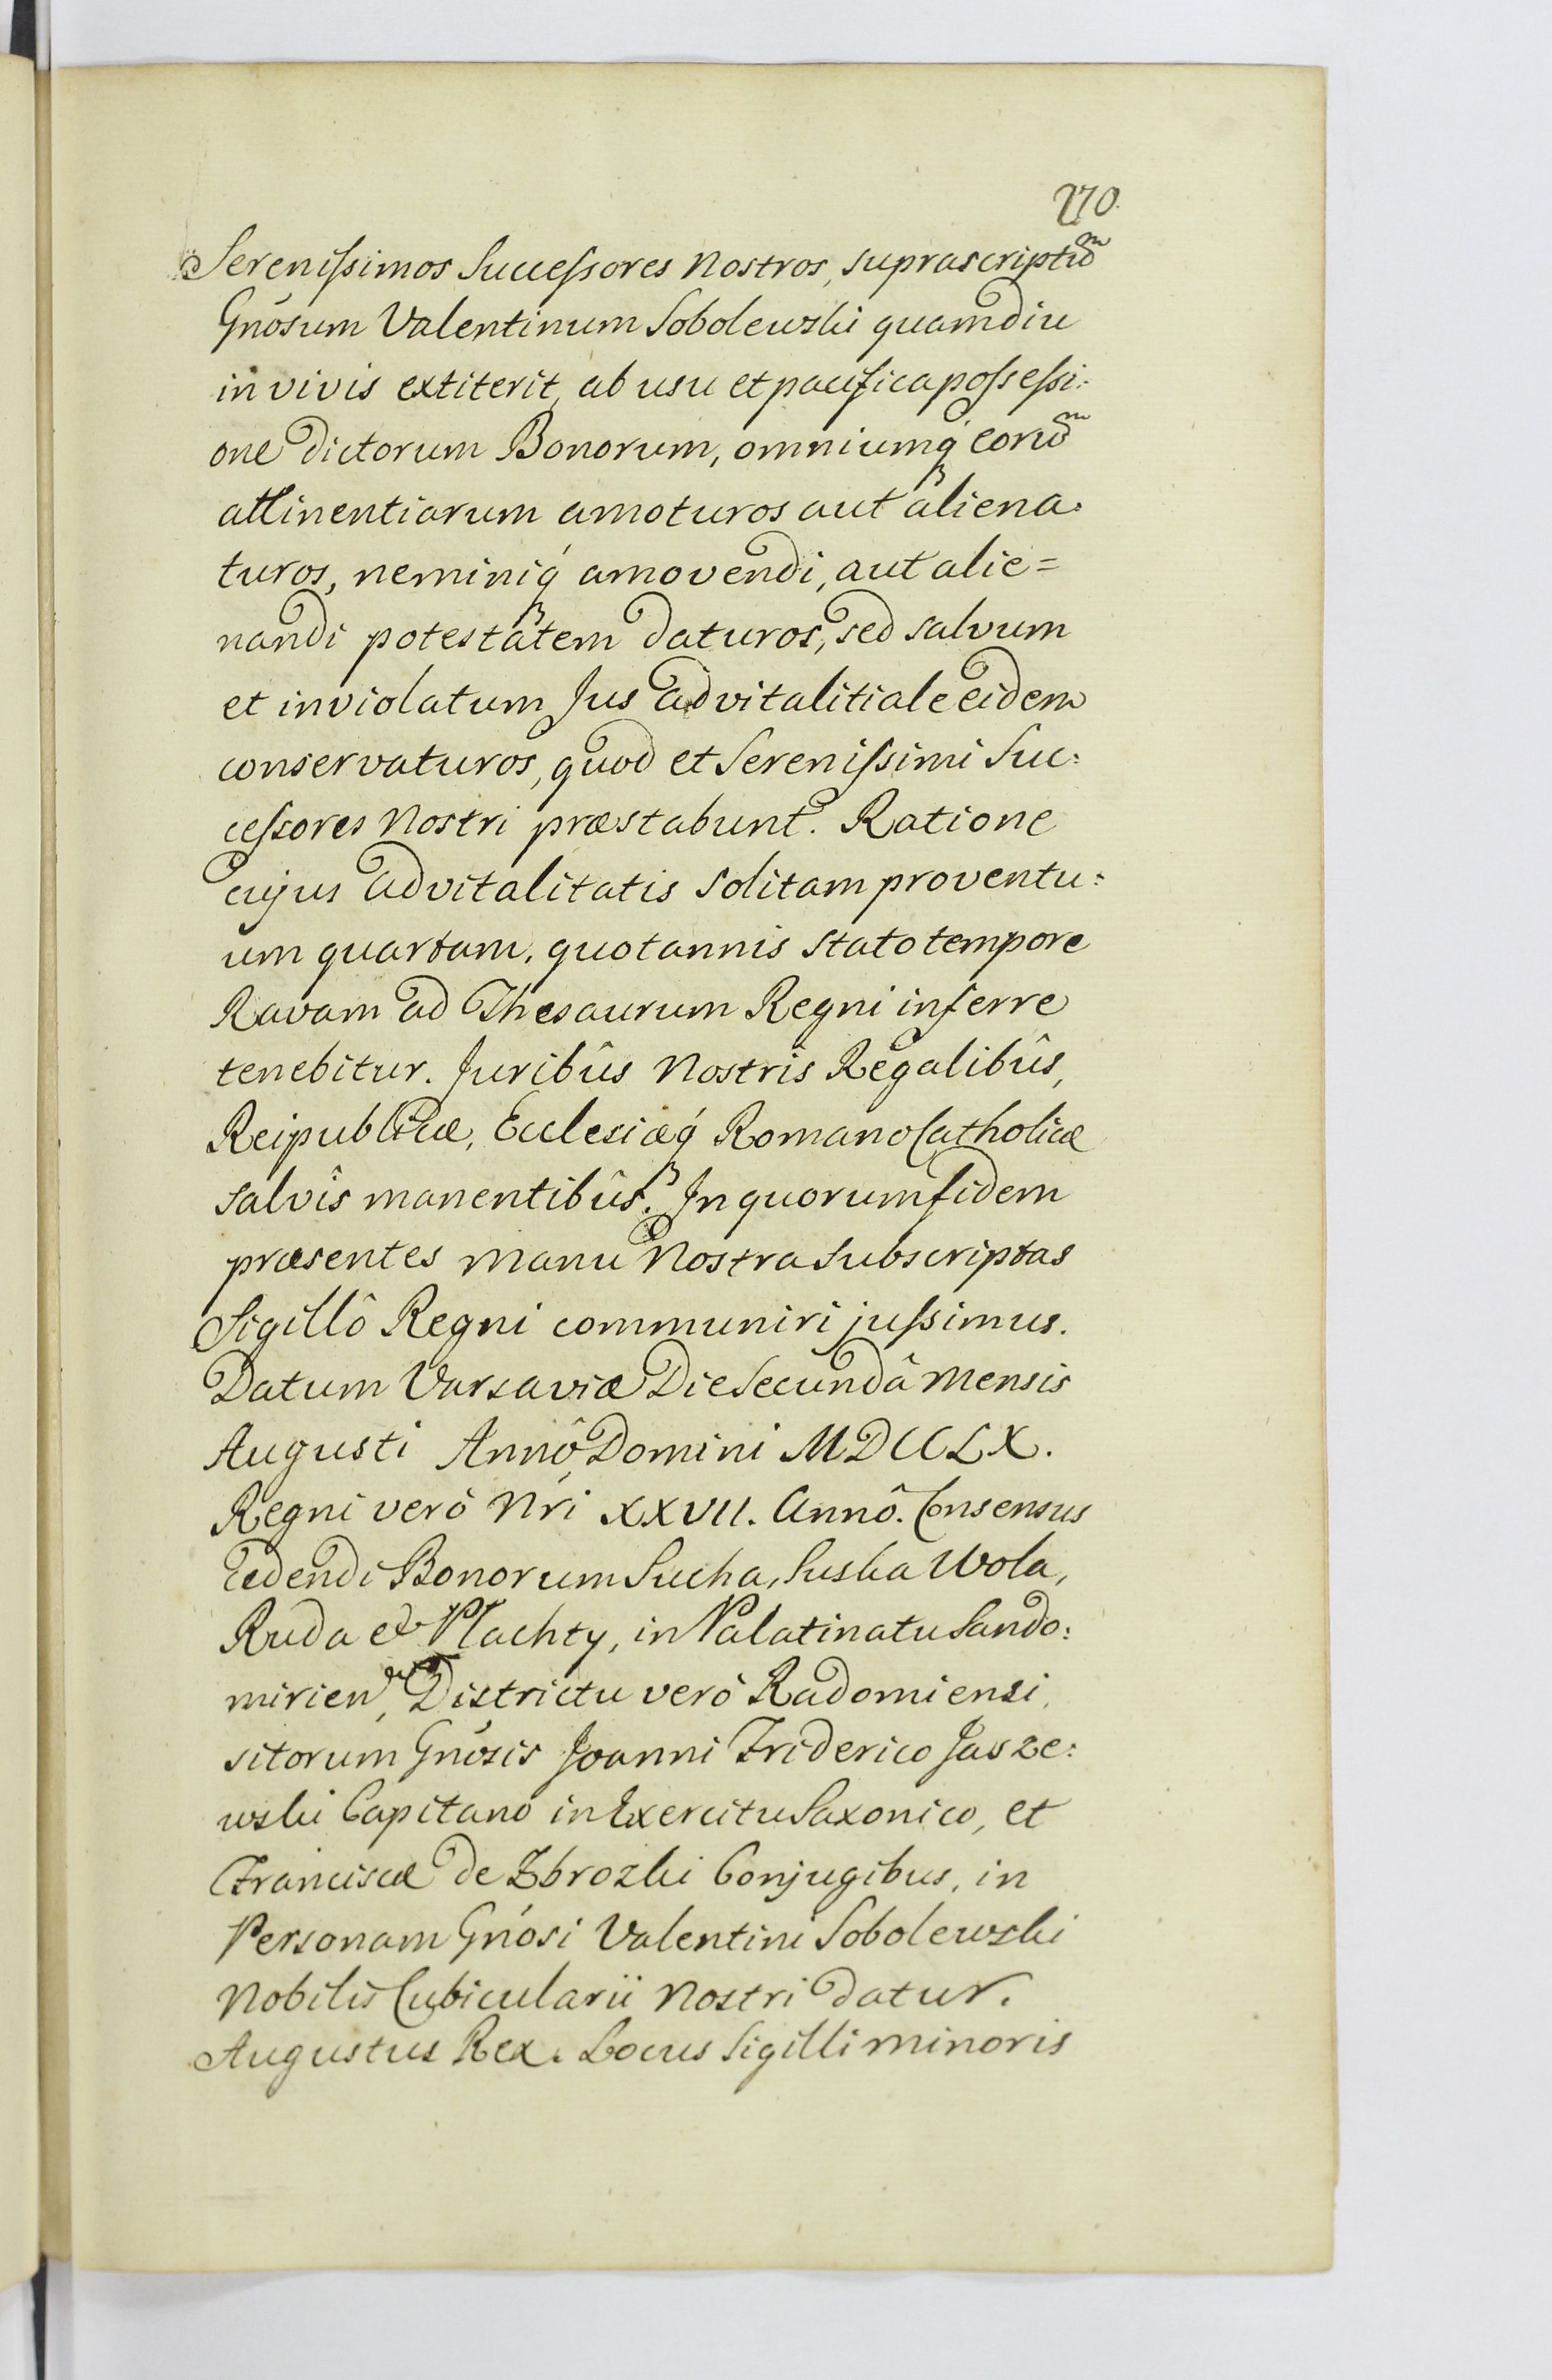 270.
Serenissimos Successores Nostros, suprascriptū
Gnosum Valentinum Sobolewski quamdiu
in vivis extiterit, ab usu et pacifica possessi-
one dictorum Bonorum, omniumq́ eorū
attinentiarum amoturos aut aliena-
turos, neminiq́ amovendi, aut alie=
nandi potestatem daturos, sed salvum
et inviolatum Jus advitalitiale eidem
conservaturos, quod et Serenissimi Suc-
cessores Nostri præstabunt. Ratione
cujus advitalitatis solitam proventu-
um quartam, quotannis stato tempore
Ravam ad Thesaurum Regni inferre
tenebitur. Juribûs Nostris Regalibûs,
Reipublicæ, Ecclesiæq́ Romano Catholicæ
salvîs manentibûs. In quorum fidem
præsentes Manu Nostra subscriptas
Sigillô Regni communiri jussimus.
Datum Varsaviæ Die Secundâ Mensis
Augusti Annô Domini MDCCLX.
Regni verò Nri XXVII. Annô. Consensus
Cedendi Bonorum Sucha, Suska Wola,
Ruda et Płachty, in Palatinatu Sando-
mirien, Districtu verò Radomiensi,
sitorum Gnosis Joanni Friderico Jasze-
wski Capitano in Exercitu Saxonico, et
Franciscæ de Zbrozki Conjugibus, in
Personam Gnosi Valentini Sobolewski
Nobilis Cubicularii Nostri datur.
Augustus Rex. Locus Sigilli minoris